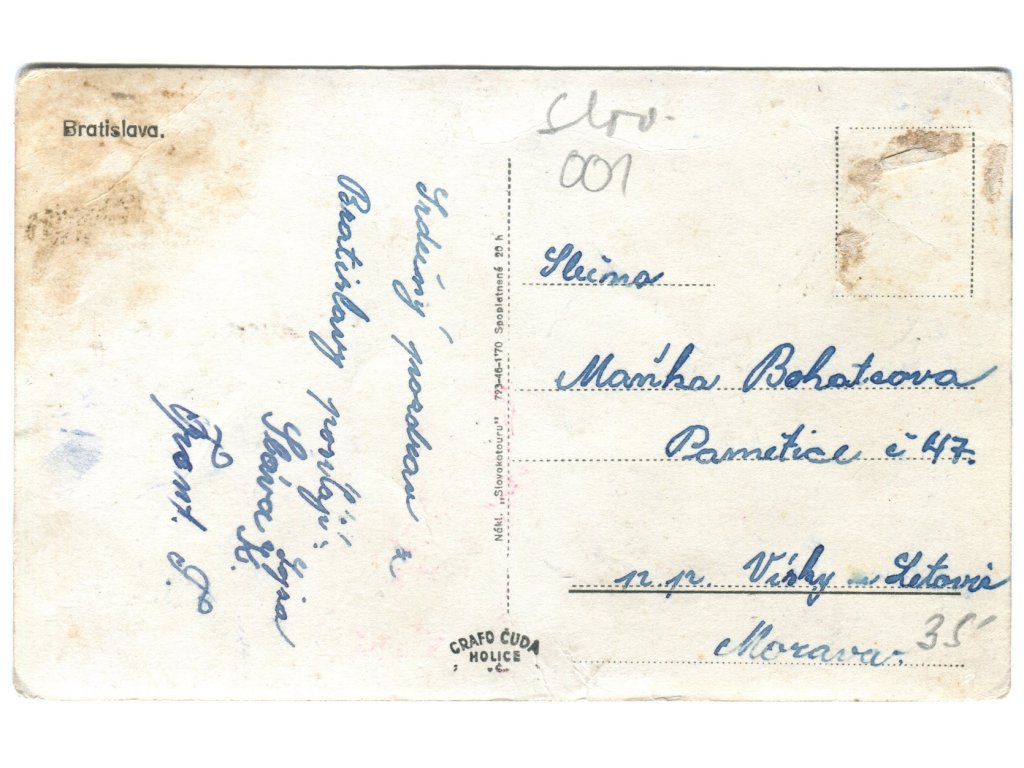 Bratislava.
Slov.
001
Srdečný pozdrav z
Bratislavy posílají:
Sláva K.
Lojza
Frant. P.
Nákl. „Slovakotouru" 793-46-1'70 Spoplatnené 20 h
Slečna
Mařka Bohatcova
Pamětice č 47.
p. p. Vísky u Letovic
Morava.
35
GRAFO ČUDA
HOLICE